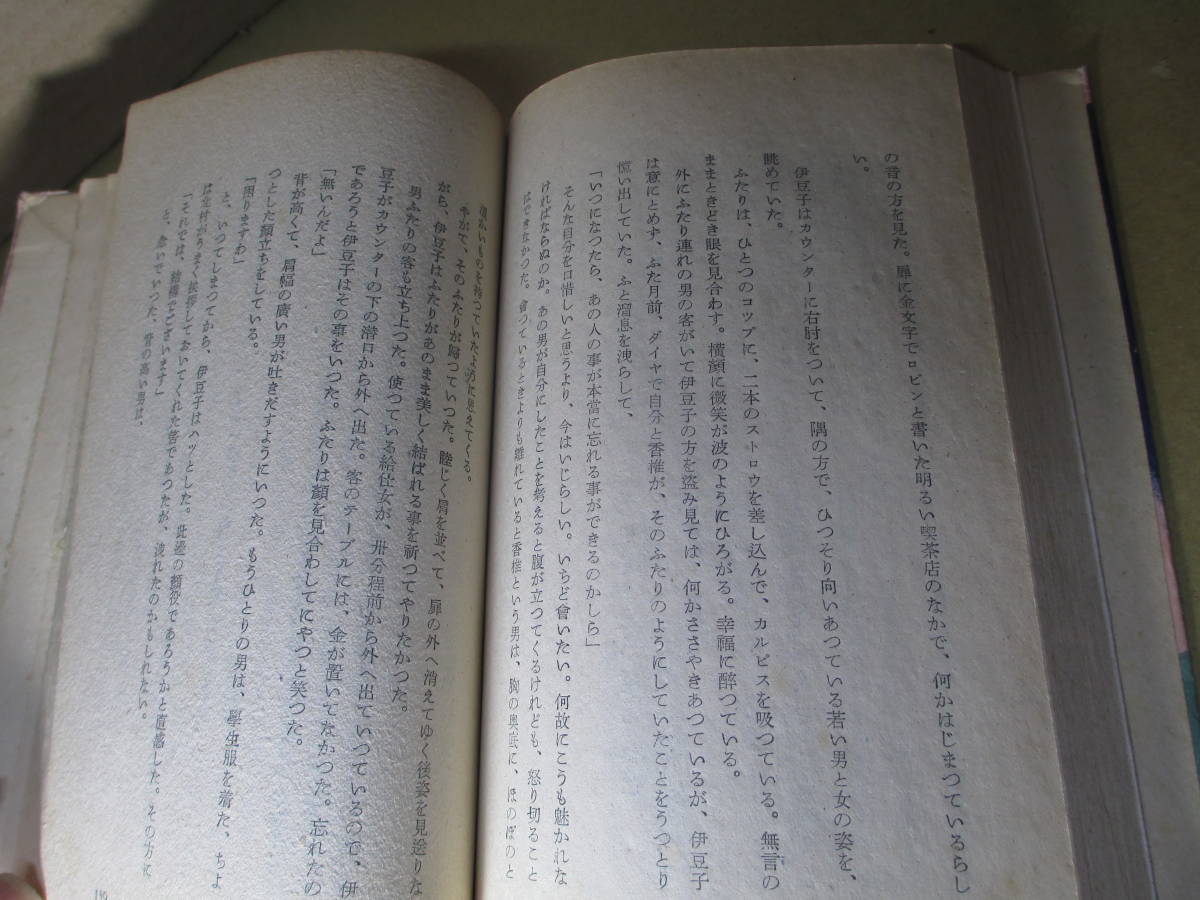 の音の方を見た。扉に金文字でロビンと書いた明るい喫茶店のなかで、何かはじまつているらし
い。
伊豆子はカウンターに右肘をついて、隅の方で、ひつそり向いあつている若い男と女の姿を、
眺めていた。
ふたりは、ひとつのコップに、二本のストロウを差し込んで、カルピスを吸つている。無言の
まゝときどき眼を見合わす。横顔に微笑が波のようにひろがる。幸福に醉つている。
外にふたり連れの男の客がいて伊豆子の方を盗み見ては、何かささやきあつているが、伊豆子
は意にとめず、ふた月前、ダイヤで自分と香椎が、そのふたりのようにしていたことをうつとり
憶い出していた。ふと溜息を洩らして、
「いつになつたら、あの人の事が本當に忘れる事ができるのかしら」
そんな自分を口惜しいと思うより、今はいじらしい。いちど會いたい。何故にこうも魅かれな
ければならぬのか。あの男が自分にしたことを考えると腹が立つてくるけれども、怒り切ること
はできなかつた。會つているときよりも離れていると香椎という男は、胸の奥底に、ほのぼのと
温かいものを持つていたように思えてくる。
やがて、そのふたりが歸つていつた。睦じく肩を並べて、扉の外へ消えてゆく後姿を見送りな
がら、伊豆子はふたりがあのまま美しく結ばれる事を祈つてやりたかつた。
男ふたりの客も立ち上つた。使つている給仕女が、卅分程前から外へ出ていつているので、伊
豆子がカウンターの下の潜口から外へ出た。客のテーブルには、金が置いてなかつた。忘れたの
であろうと伊豆子はその事をいつた。ふたりは顔を見合わしてにやつと笑つた。
「無いんだよ」
背が高くて、肩幅の廣い男が吐きだすようにいつた。もうひとりの男は、學生服を着た、ちよ
つとした顔立ちをしている。
「困りますわ」
と、いつてしまつてから、伊豆子はハッとした。此邊の顔役であろうかと直感した。その方に
は北村がうまく挨拶しておいてくれた筈であつたが、洩れたのかもしれない。
「それでは、結構でございます」
と、急いでいつた、脊の高い男は、